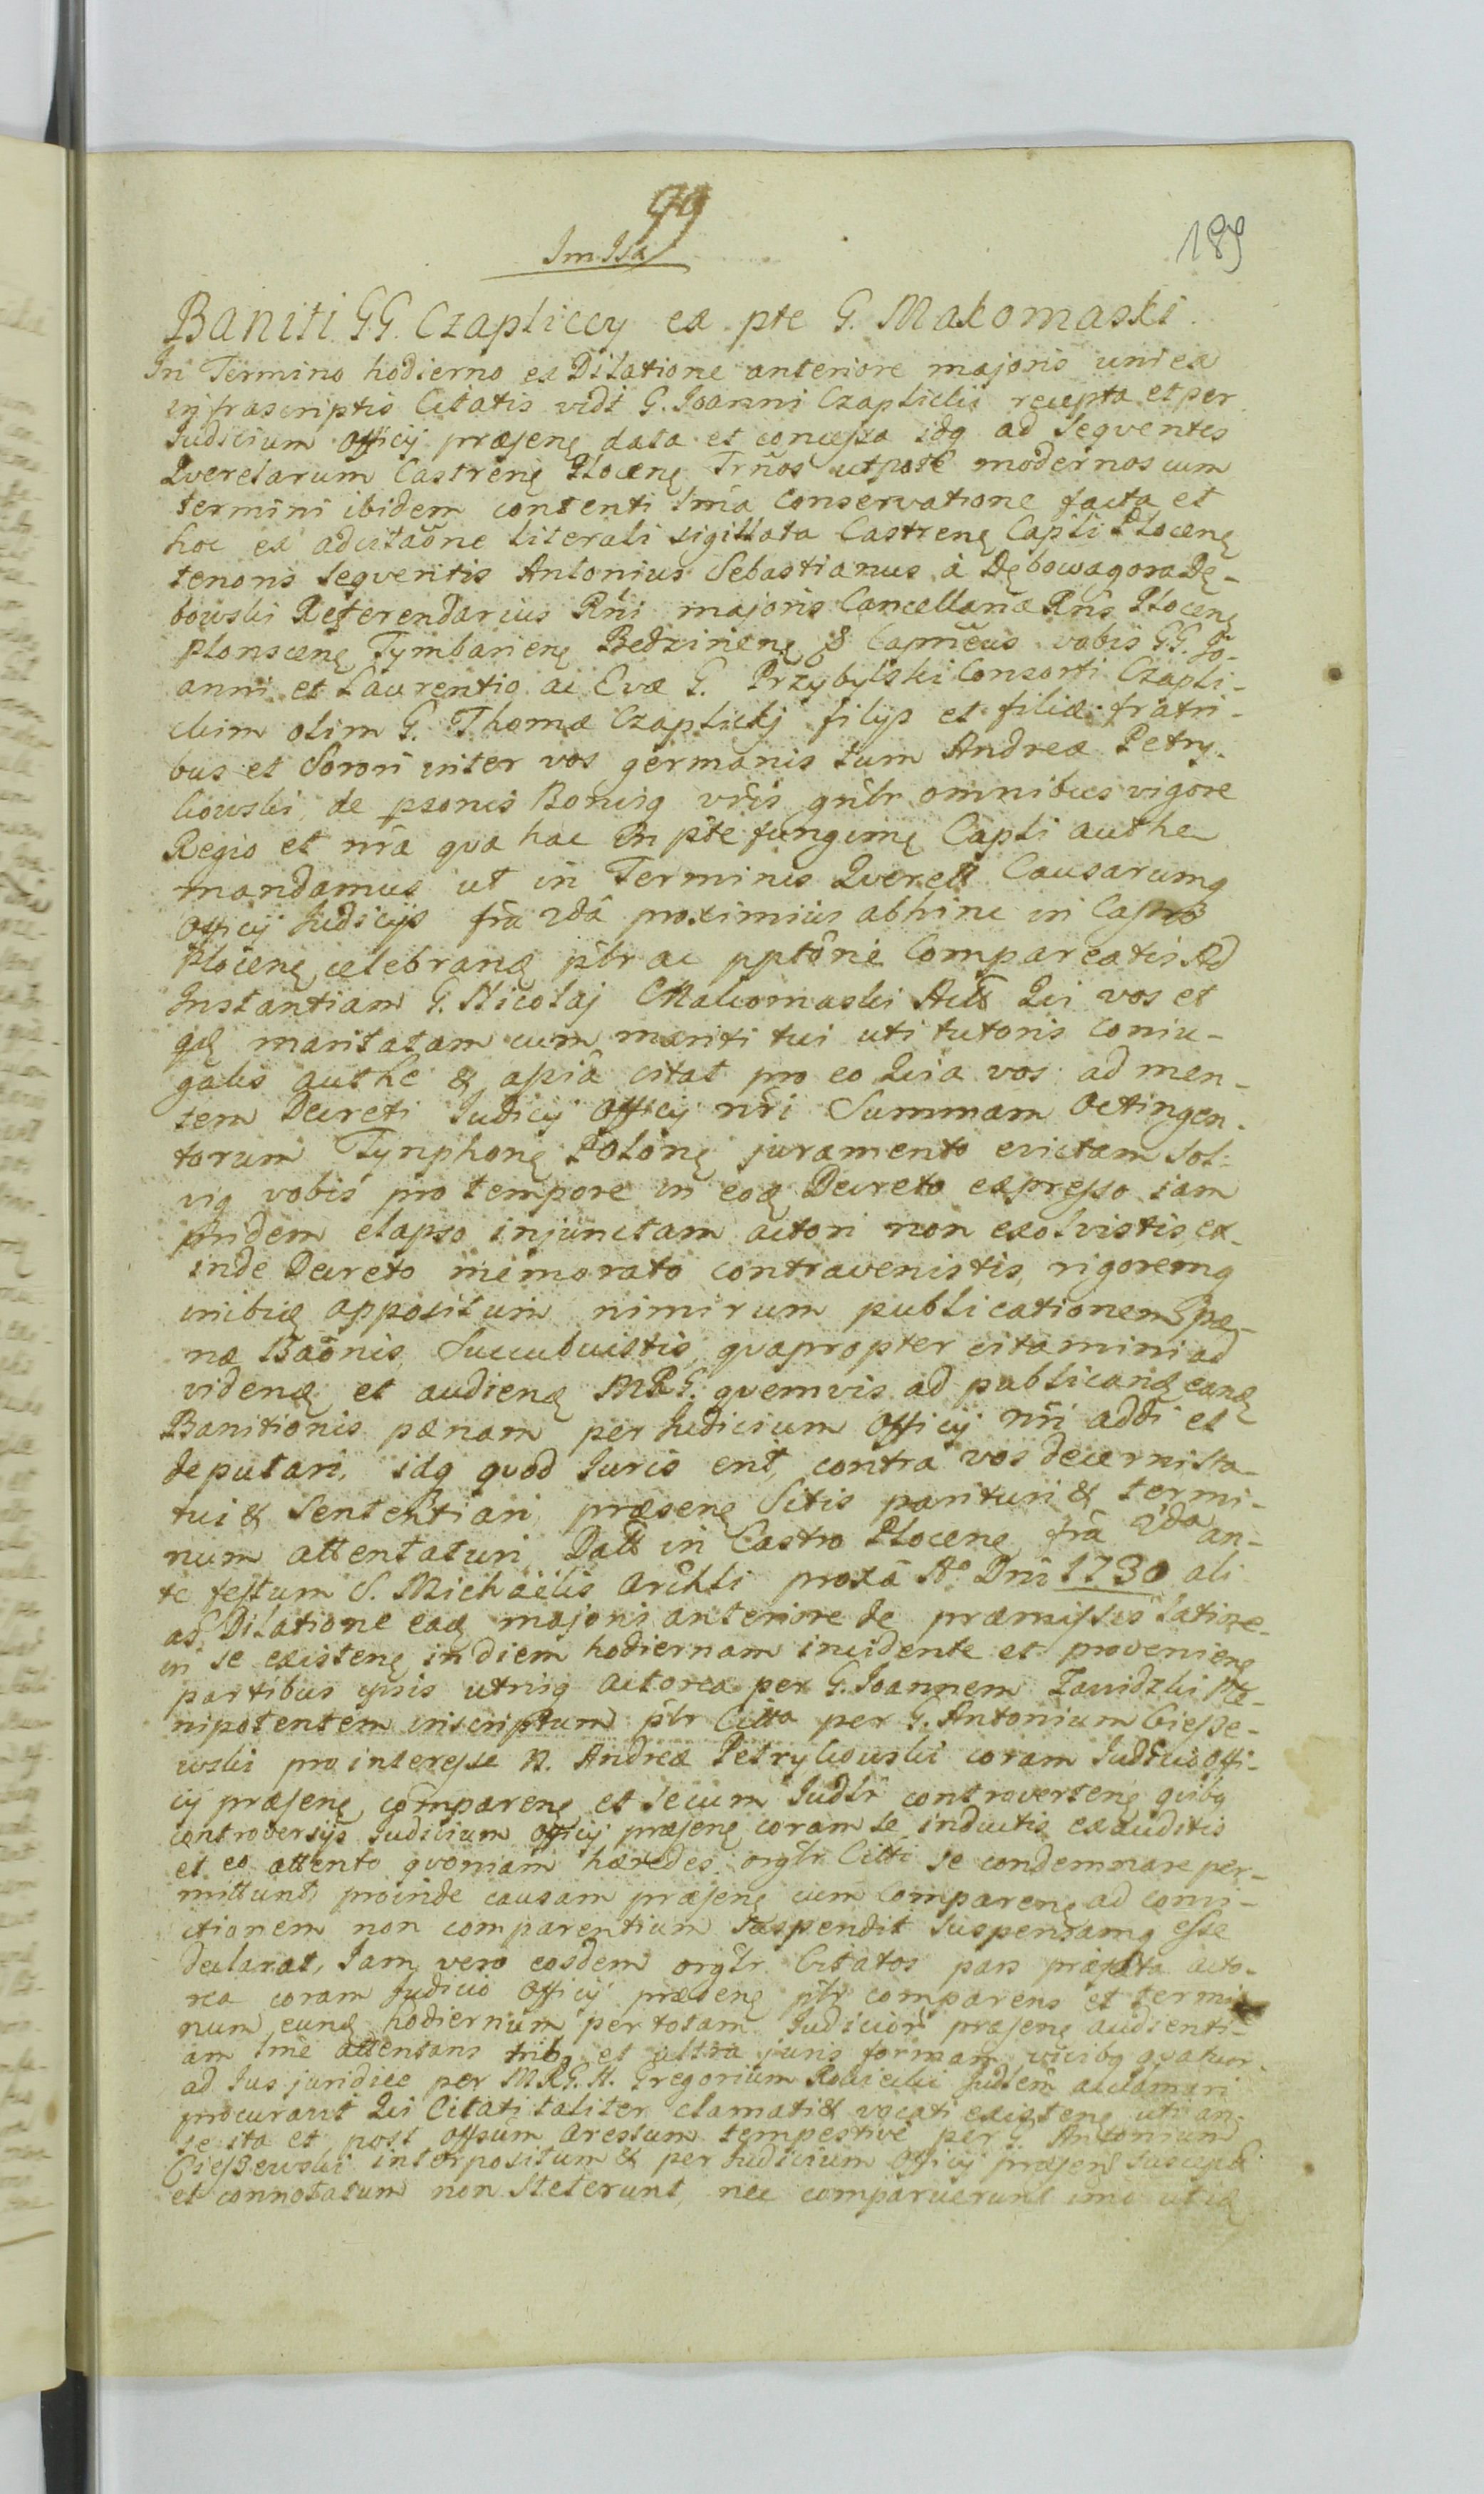 99
189
Im Isa
Baniti GG. Czapliccy ex pte G. Makomaski.
In Termino hodierno ex Dilatione anteriore majoris uniea
infrascriptis Citatis vidt G. Joanni Czaplicki recepta et per
Judicium Officij præsenę data et concessa idq ad seqventes
Qverelarum Castrenę Plocenę Trños utpote modernos cum
termini ibidem contenti lmia Conservatione facta et
hoc ex adcitaõne literali sigillata Castrenę Capli Plocenę
tenoris seqventis Antonius Sebastianus à Dębowagora Dę-
bowski Referendarius Rñi majoris Cancellariæ Rñs Plocenę
Plonscenę Tymbarienę Bedzinenę & Capñeus vobis GG. Jo-
anni et Laurentio ac Evæ G. Przybylski Consorti Czapli-
ckim olim G. Thomæ Czaplickj filijs et filiæ fratri-
bus et Sorori inter vos germanis tum Andreæ Petry-
kowski de psonis Bonisq vris gnlr omnibus vigore
Regio et nra qva hac in pte fungimę Capli authe
mandamus ut in Terminis Qverell Causarumq
Officij Judicijs fria 2da proximius abhinc in Castro
Plocenę celebranę plr ac pptõrie Compareatis Ad
Instantiam G. Nicolaj Makomaski Actt Qui vos et
qę maritatam cum mariti tui uti tutoris coniu-
galis authe & assia citat pro eo Qvia vos ad men-
tem Decreti Judicij Officij nri Summam Octingen-
torum Tynphonę Polonę juramento evictam sol-
viq vobis pro tempore in eoę Decreto expresso iam
pridem elapso injunctam actori non exolvistis, ex-
inde Decreto memorato contravenistis, rigoremq
inibię appositum nimirum publicationem pæ-
næ Baõnis, Succubuistis, qvapropter citamini ad
videnę et audienę MRG. qvemvis ad publicanę eanę
Banitionis pænam per Judicium Officij nri addi et
deputari, idq qvod Juris erit, contra vos decerni sta-
tui & Sententiari præsenę Sitis parituri & termi-
num attentaturi. Datt in Castro Plocenę fria 2da an-
te festum S. Michaëlis Archli proxa Ao Dni 1730 ali
as Dilatione eaę majori anteriore de præmissis latine
in se existenę in diem hodiernam incidente et provenienę
partibus ipsis utrisq actorea per G. Joannem Zawidzki Ple-
nipotentem inscriptum plr Citta per G. Antonium Ciesze-
wski pro interesse N. Andreæ Petrykowski coram Judicio Offi-
cij præsenę comparenę et secum Judlr controvertenę qvibq
controversijs Judicium Officij præsenę coram se inductis exauditis
et eo attento qvoniam hæredes orglr Citti se condemnare per-
mittunt, proinde causam præsenę cum Comparenę ad convi-
ctionem non comparentium suspendit suspensamq esse
declarat, Jam vero eosdem orglr Citatos pars præfata acto-
rea coram Judicio Officij præsenę plr comparens et termi-
num eunę hodiernum per totam Judicior præsenę audienti-
am lme attentans tribę et ultra juris formam vicibq qvatuor
ad Jus juridice per MRG. N. Gregorium Judlem acclamari
procuravit Qui Citati taliter clamati & vocati existenę uti an-
te ita et post offsum arestum tempestive per G Antonium
Cieszewski interpositum & per Judicium Officij præsenę susceptt
et connotatum non Steterunt, nec comparuerunt imo